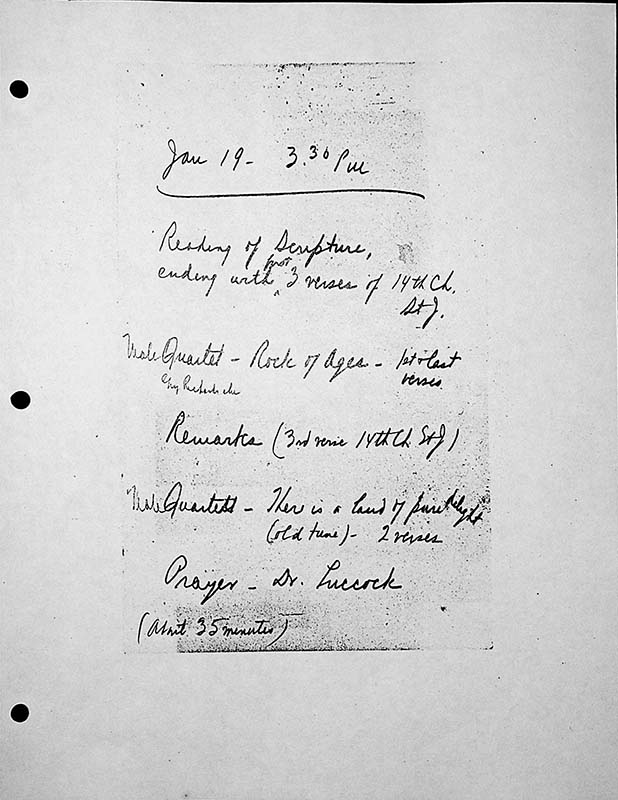 Jan 19 - 3.30 PM
Reading of Scripture,
first
ending with 3 verses of 14th Ch.
St J.
Male Quartet - Rock of Ages - 1st & last
verses
Remarks (3rd verse 14th Ch. St J)
Male Quartett - There is a land of pure delight
(old tune) - 2 verses
Prayer - Dr. Luccock
(About 35 minutes)